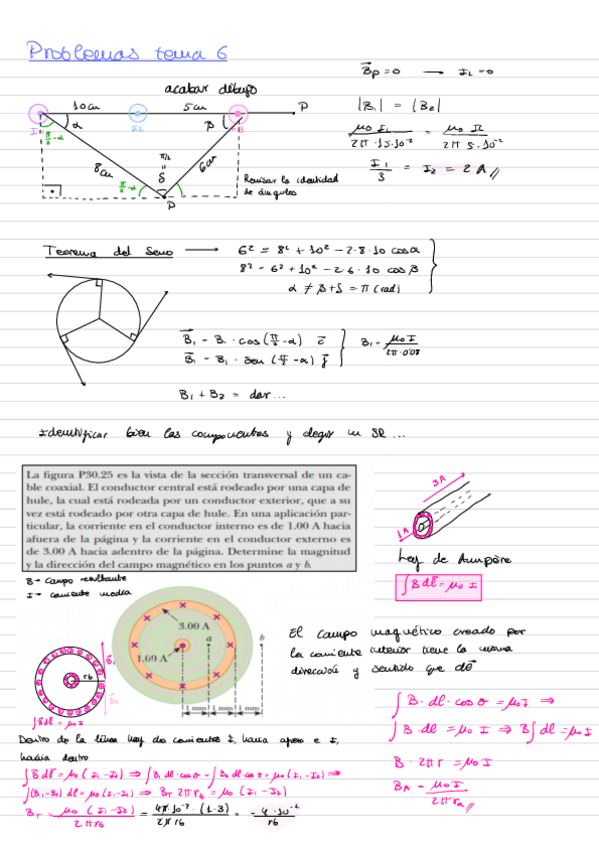 Problemas tema 6
B⃗p = 0 → I_L = 0
acabar dibujo
10cm 5cm P
|B₁| = |B₂|
I α I_L β B
π/2 - α
μ₀ I₁ / 2π · 15·10⁻² = μ₀ I₂ / 2π 5·10⁻²
8cm π/2 = δ 6cm
I₁/3 = I₂ = 2 A //
π/2 - α
Revisar la identidad
de ángulos
P
Teorema del Seno → 6² = 8² + 10² - 2·8·10 cos α
8² - 6² + 10² - 2·6·10 cos β
α ≠ β + δ = π (rad)
B⃗₁ - B₁ · cos (π/2 - α) i⃗
B₁ = μ₀ I / 2π·0'08
B⃗₁ - B₁ · sen (π/2 - α) j⃗
B₁ + B₂ = dar...
Identificar bien las componentes y elegir un SR ...
La figura P30.25 es la vista de la sección transversal de un ca-
ble coaxial. El conductor central está rodeado por una capa de
hule, la cual está rodeada por un conductor exterior, que a su
vez está rodeado por otra capa de hule. En una aplicación par-
ticular, la corriente en el conductor interno es de 1.00 A hacia
afuera de la página y la corriente en el conductor externo es
de 3.00 A hacia adentro de la página. Determine la magnitud
y la dirección del campo magnético en los puntos a y b.
3A
1A
Ley de Ampère
∫ B dl⃗ = μ₀ I
B → campo resultante
I → corriente media
3.00 A
a b
1.00 A
1 mm 1 mm 1 mm
El campo magnético creado por
la corriente interior tiene la misma
dirección y sentido que dl⃗
r₆
∫ B dl = μ₀ I
∫ B · dl · cos θ = μ₀ I ⇒
∫ B · dl = μ₀ I ⇒ B ∫ dl = μ₀ I
B · 2π r = μ₀ I
B_A - μ₀ I / 2π r_a //
Dentro de la línea hay dos corrientes I₁ hacia afuera e I₂
hacia dentro
∫ B⃗ dl⃗ = μ₀ (I₁ - I₂) ⇒ ∫ B₁ dl · cos θ - ∫ B₂ dl cos θ = μ₀ (I₁ - I₂) ⇒
∫ (B₁ - B₂) dl = μ₀ (I₁ - I₂) ⇒ B_T 2π r₆ = μ₀ (I₁ - I₂)
B_T = μ₀ (I₁ - I₂) / 2π r₆ = 4π·10⁻⁷ · (1-3) / 2π r₆ = - 4·10⁻⁷ / r₆